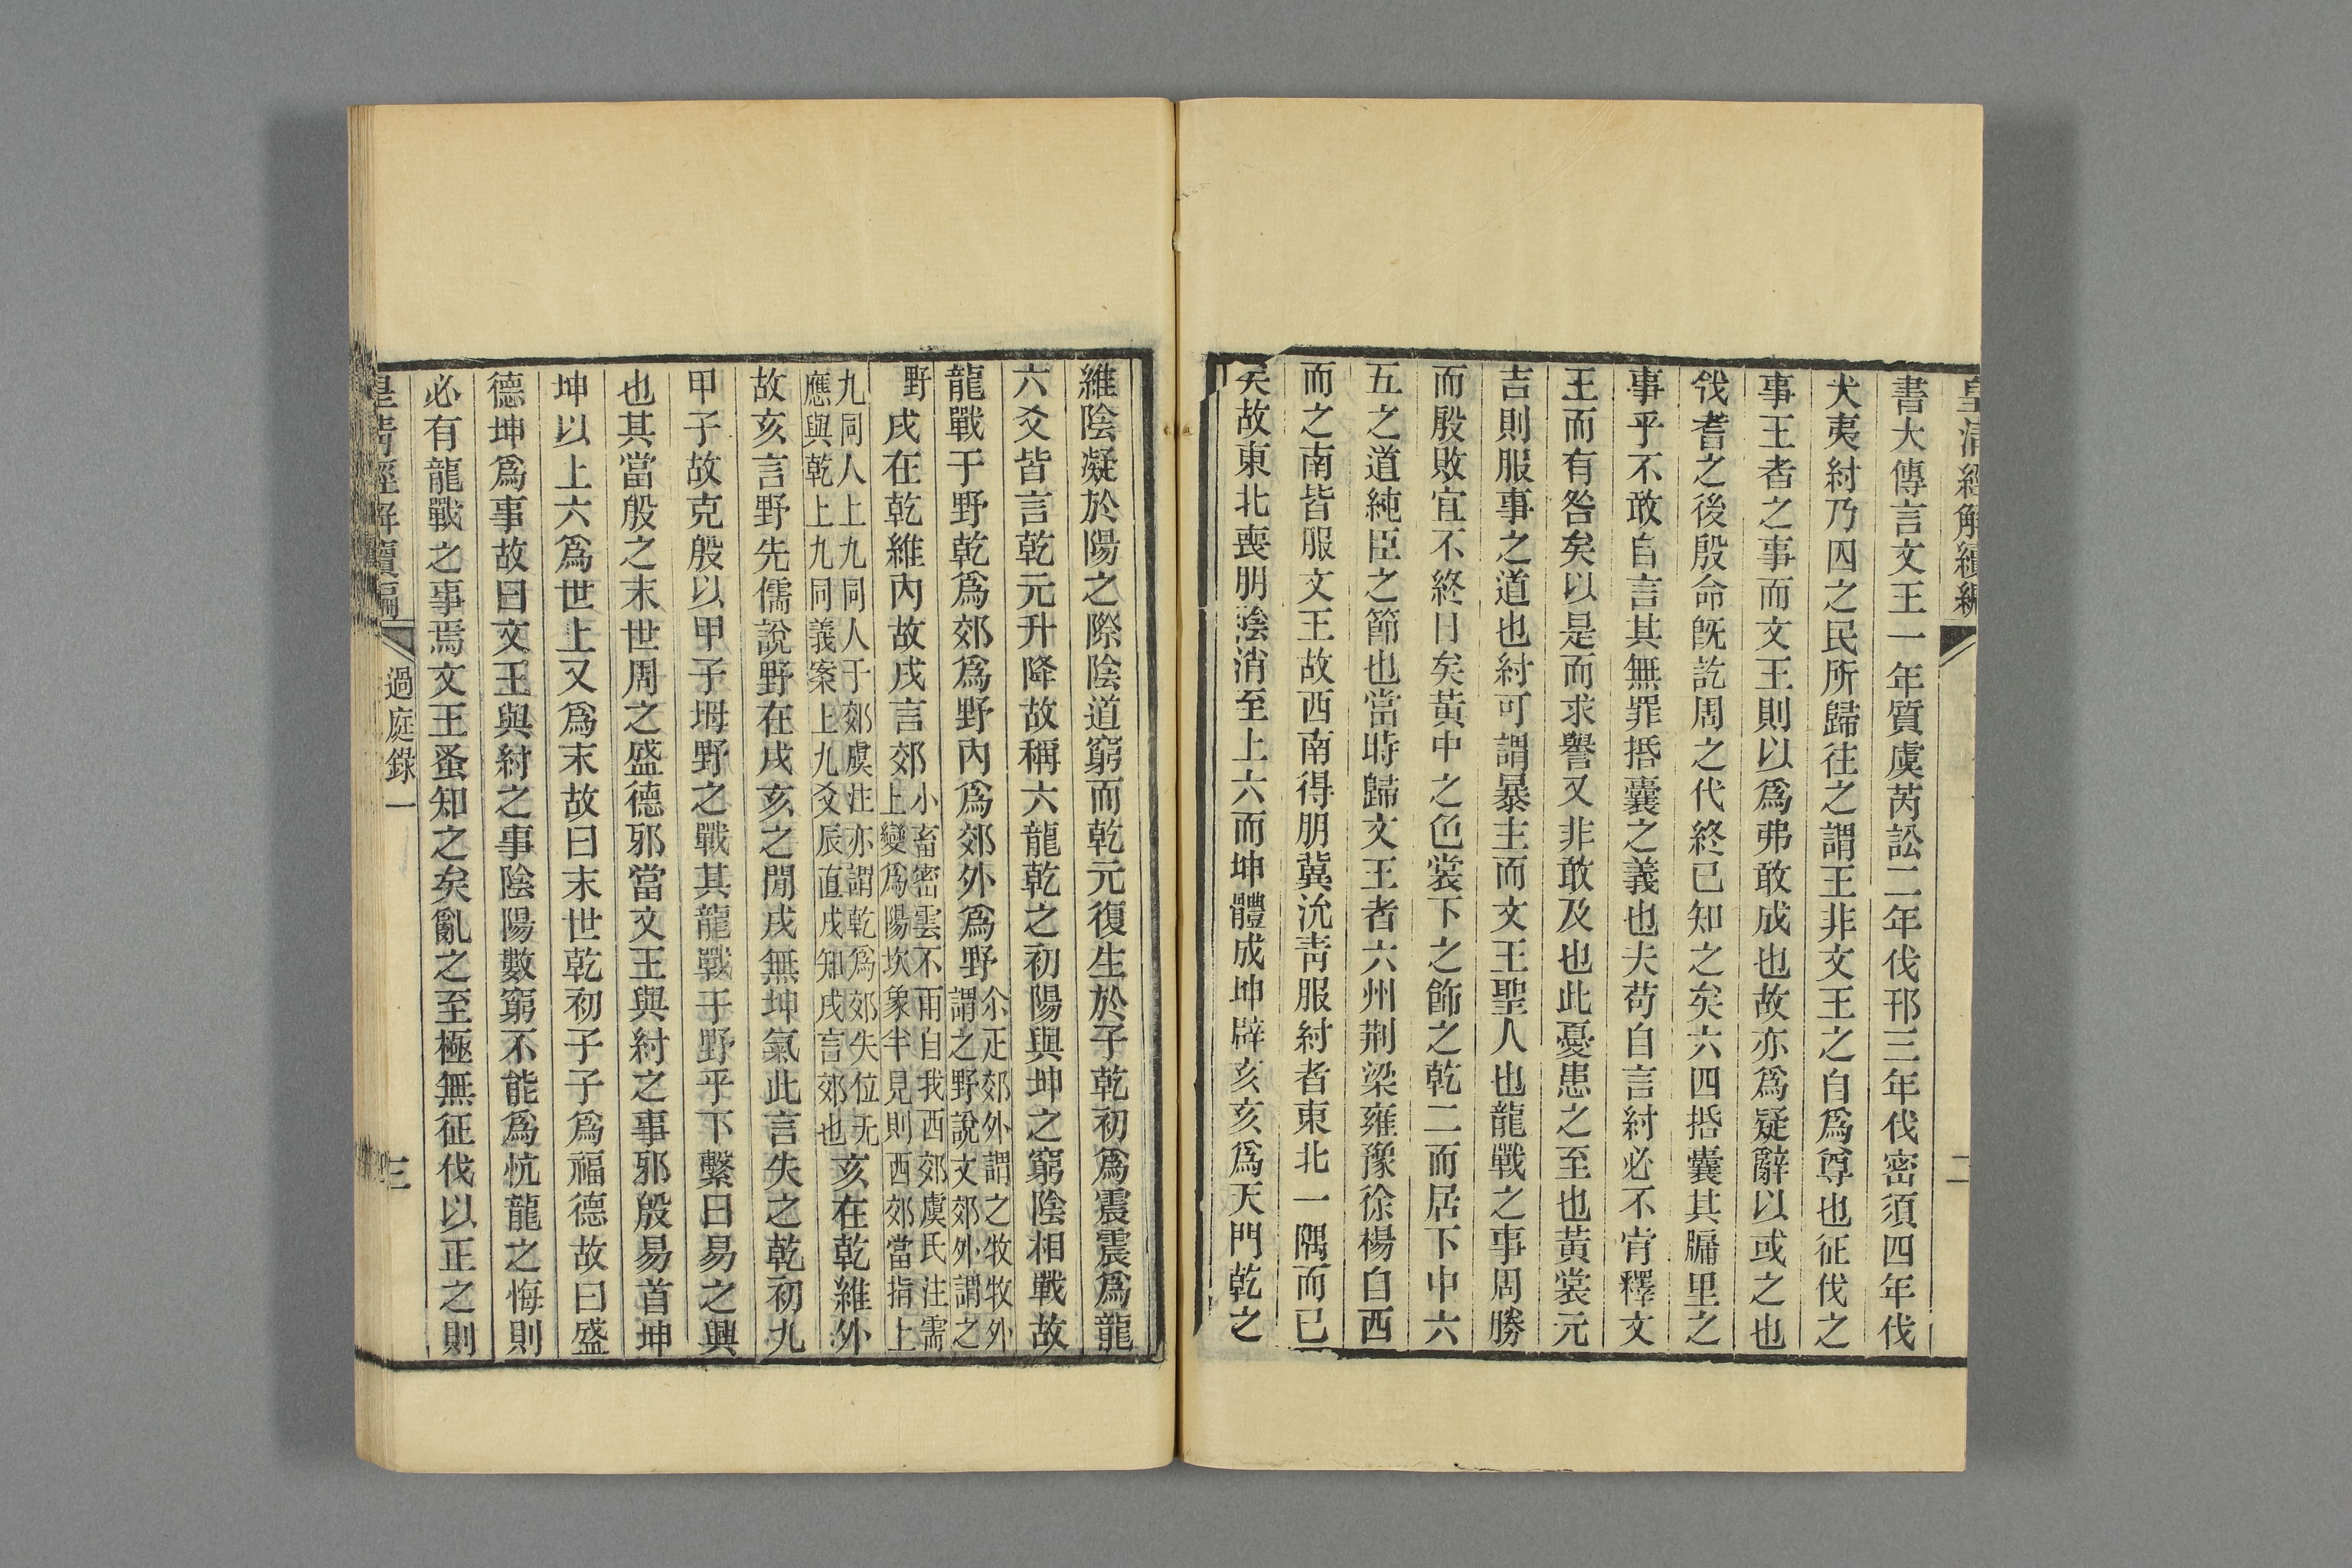 皇清經解續編
二
書大傳言文王一年質虞芮訟二年伐邘三年伐密須四年伐
犬夷紂乃囚之民所歸往之謂王非文王之自爲尊也征伐之
事王者之事而文王則以爲弗敢成也故亦爲疑辭以或之也
伐耆之後殷命旣訖周之代終已知之矣六四括囊其牖里之
事乎不敢自言其無罪括囊之義也夫苟自言紂必不肯釋文
王而有咎矣以是而求譽又非敢及也此憂患之至也黃裳元
吉則服事之道也紂可謂暴主而文王聖人也龍戰之事周勝
而殷敗宜不終日矣黃中之色裳下之飾之乾二而居下中六
五之道純臣之節也當時歸文王者六州荆梁雍豫徐楊自西
而之南皆服文王故西南得朋冀沇靑服紂者東北一隅而已
矣故東北喪朋陰消至上六而坤體成坤辟亥亥爲天門乾之
維陰凝於陽之際陰道窮而乾元復生於子乾初爲震震爲龍
六爻皆言乾元升降故稱六龍乾之初陽與坤之窮陰相戰故
龍戰于野乾爲郊爲野內爲郊外爲野尒疋郊外謂之牧牧外謂之野說文郊外謂之
野戌在乾維內故戌言郊小畜密雲不雨自我西郊虞氏注需上變爲陽坎象半見則西郊當指上
九同人上九同人于郊虞注亦謂乾爲郊失位无應與乾上九同義案上九爻辰直戌知戌言郊也亥在乾維外
故亥言野先儒說野在戌亥之閒戌無坤氣此言失之乾初九
甲子故克殷以甲子坶野之戰其龍戰于野乎下繫曰易之興
也其當殷之末世周之盛德邪當文王與紂之事邪殷易首坤
坤以上六爲世上又爲末故曰末世乾初子子爲福德故曰盛
德坤爲事故曰文王與紂之事陰陽數窮不能爲忼龍之悔則
必有龍戰之事焉文王蚤知之矣亂之至極無征伐以正之則
皇清經解續編
過庭錄一
三